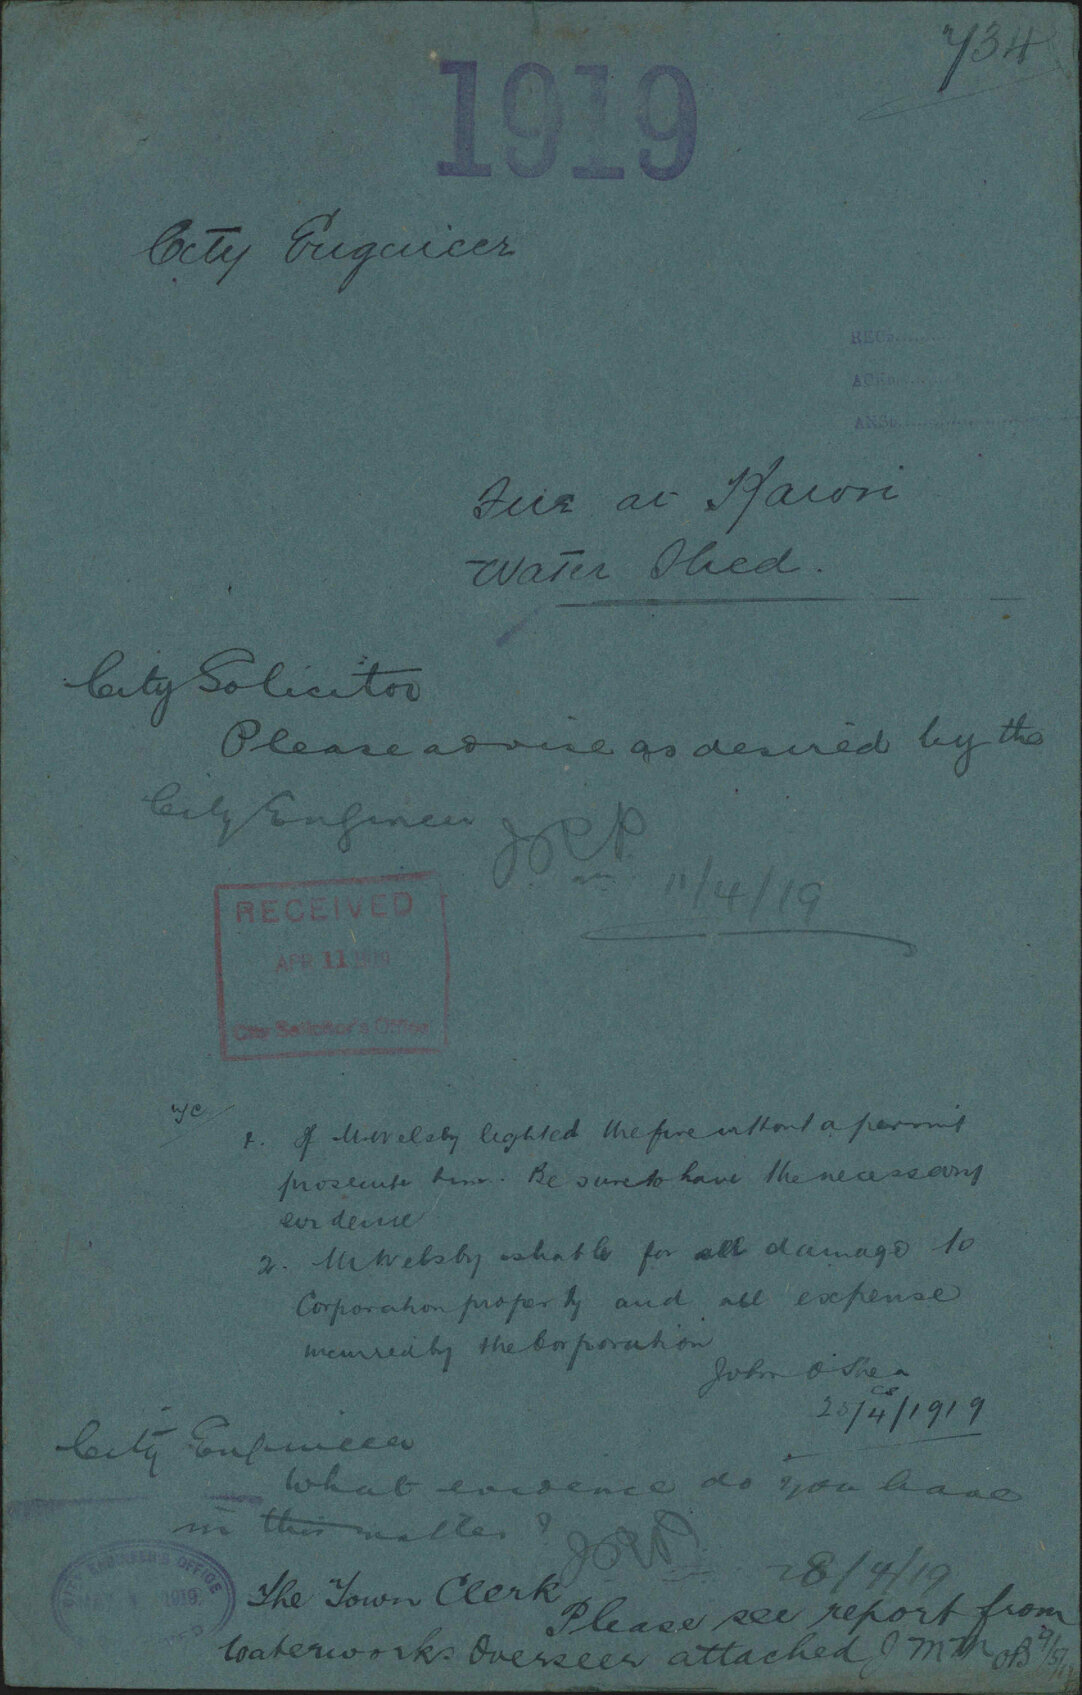 734
1919
City Engineer
REC
ACK
ANS
Fire at Karori
Water Shed.
City Solicitor
Please advise as desired by the
City Engineer
JRP
11/4/19
RECEIVED
APR 11 1919
City Solicitor's Office
TC
1. If Mr Welsby lighted the fire without a permit
prosecute him. Be sure to have the necessary
evidence
2. Mr Welsby is liable for all damage to
Corporation property and all expense
incurred by the Corporation
John O'Shea
CS
/4/1919
City Engineer
What evidence do you have
in this matter?
JRP
28/4/19
CITY ENGINEER'S OFFICE
1919
The Town Clerk
Please see report from
Waterworks Overseer attached